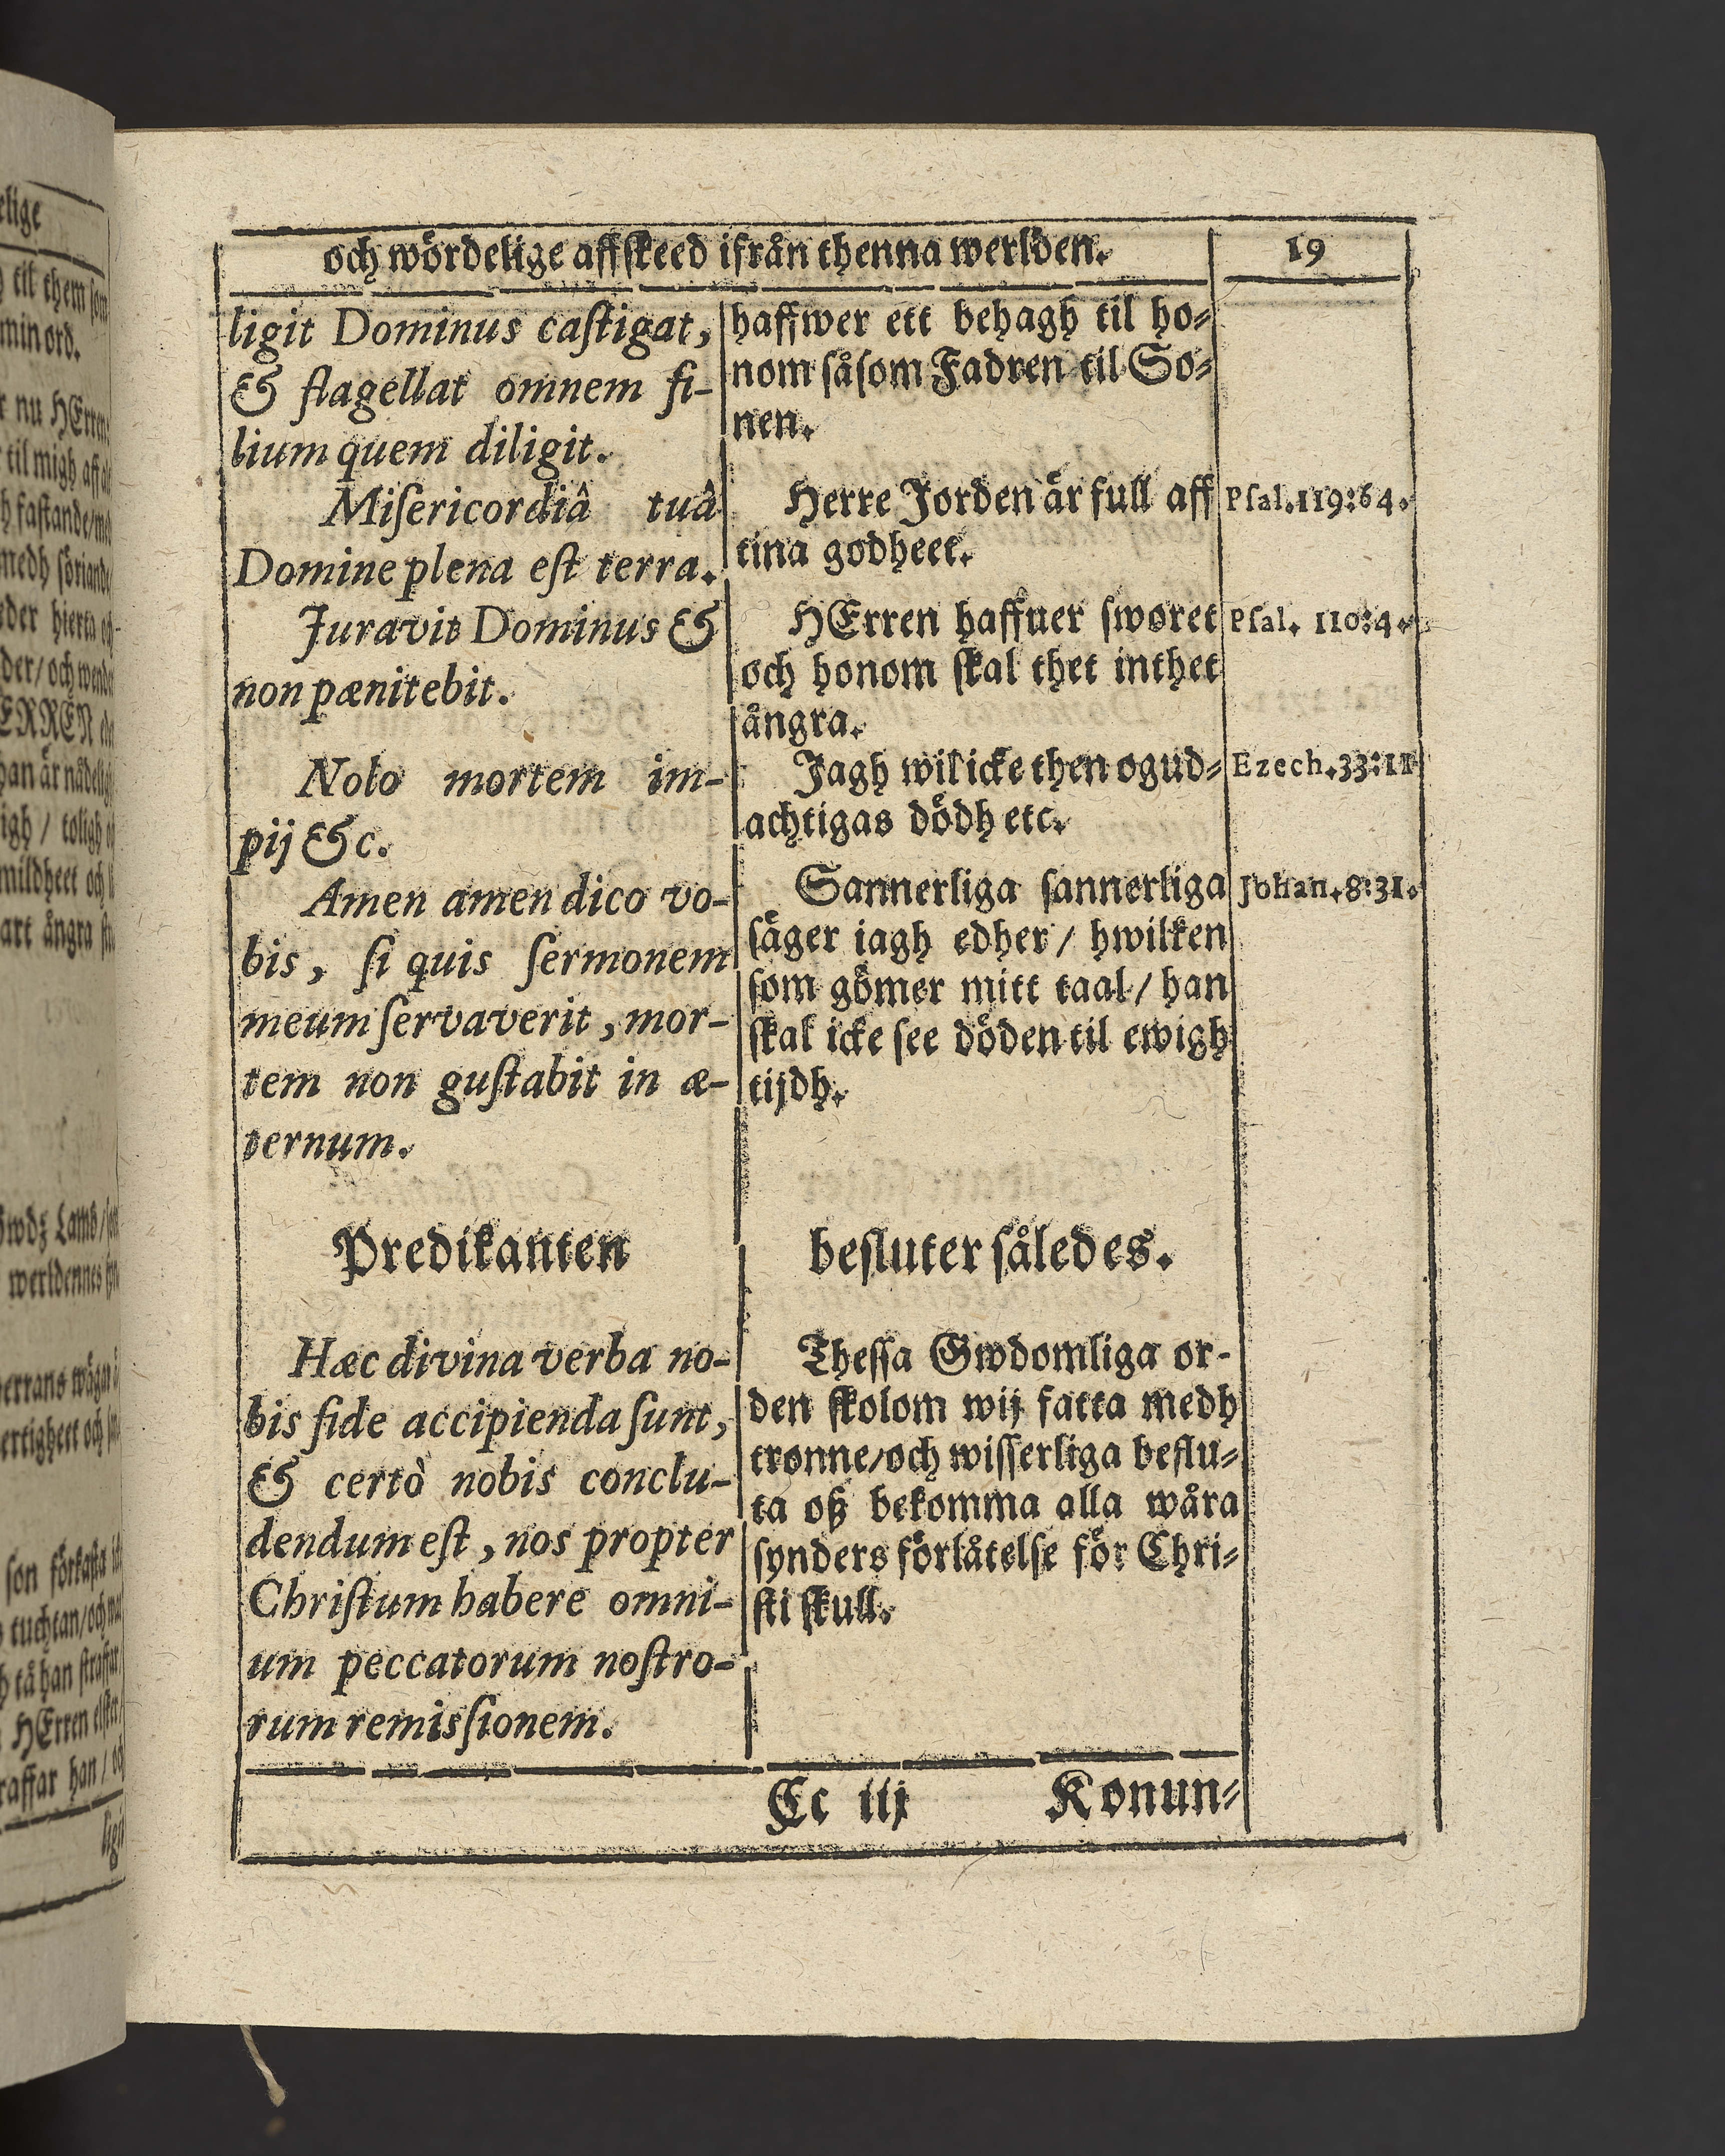 och wördelige affskeed ifrån thenna werlden.
19
ligit Dominus caſtigat,
& flagellat omnem fi-
lium quem diligit.
Miſericordiâ tuâ
Domine plena eſt terra.
Juravit Dominus &
non pænitebit.
Nolo mortem im-
pij &c.
Amen amen dico vo-
bis, ſi quis ſermonem
meum ſervaverit, mor-
tem non guſtabit in æ-
ternum.
haffwer ett behagh til ho-
nom ſåſom Fadren til So-
nen.
Herre Jorden är full aff
tina godheet.
HErren haffuer ſworet
och honom ſkal thet inthet
ångra.
Jagh wil icke then ogud-
achtigas dödh etc.
Sannerliga ſannerliga
ſäger iagh edher / hwilken
ſom gömer mitt taal / han
ſkal icke ſee döden til ewigh
tijdh.
Pſal.119:64.
Pſal. 110:4.
Ezech.33:11
Johan.8:31.
Predikanten beſluter ſåledes.
Hæc divina verba no-
bis fide accipienda ſunt,
& certò nobis conclu-
dendum eſt, nos propter
Chriſtum habere omni-
um peccatorum noſtro-
rum remisſionem.
Theſſa Gwdomliga or-
den ſkolom wij fatta medh
tronne/och wiſſerliga beſlu-
ta oß bekomma alla wåra
ſynders förlåtelſe för Chri-
ſti ſkull.
Cc iij Konun-
elige
til them ſom
min ord.
nu HErren
til migh aff
faſtande/
medh
hierta
der/ och
ERREN
han är
igh / toligh
mildheet och
art ångra
Lamb/
werldennes
errans wägar
och
ſon förkaſta
tuchtan/och
tå han ſtraffar
HErren elſker
raffar han / och
ligit